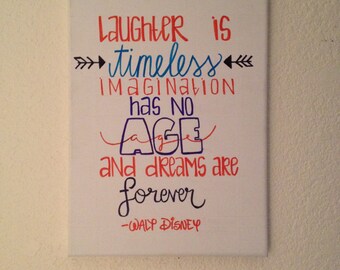 LAUGHTER IS
timeless
IMAGINATION
has no
AGE
age
AND dREAMS ARE
forever
-WALT DISNEY